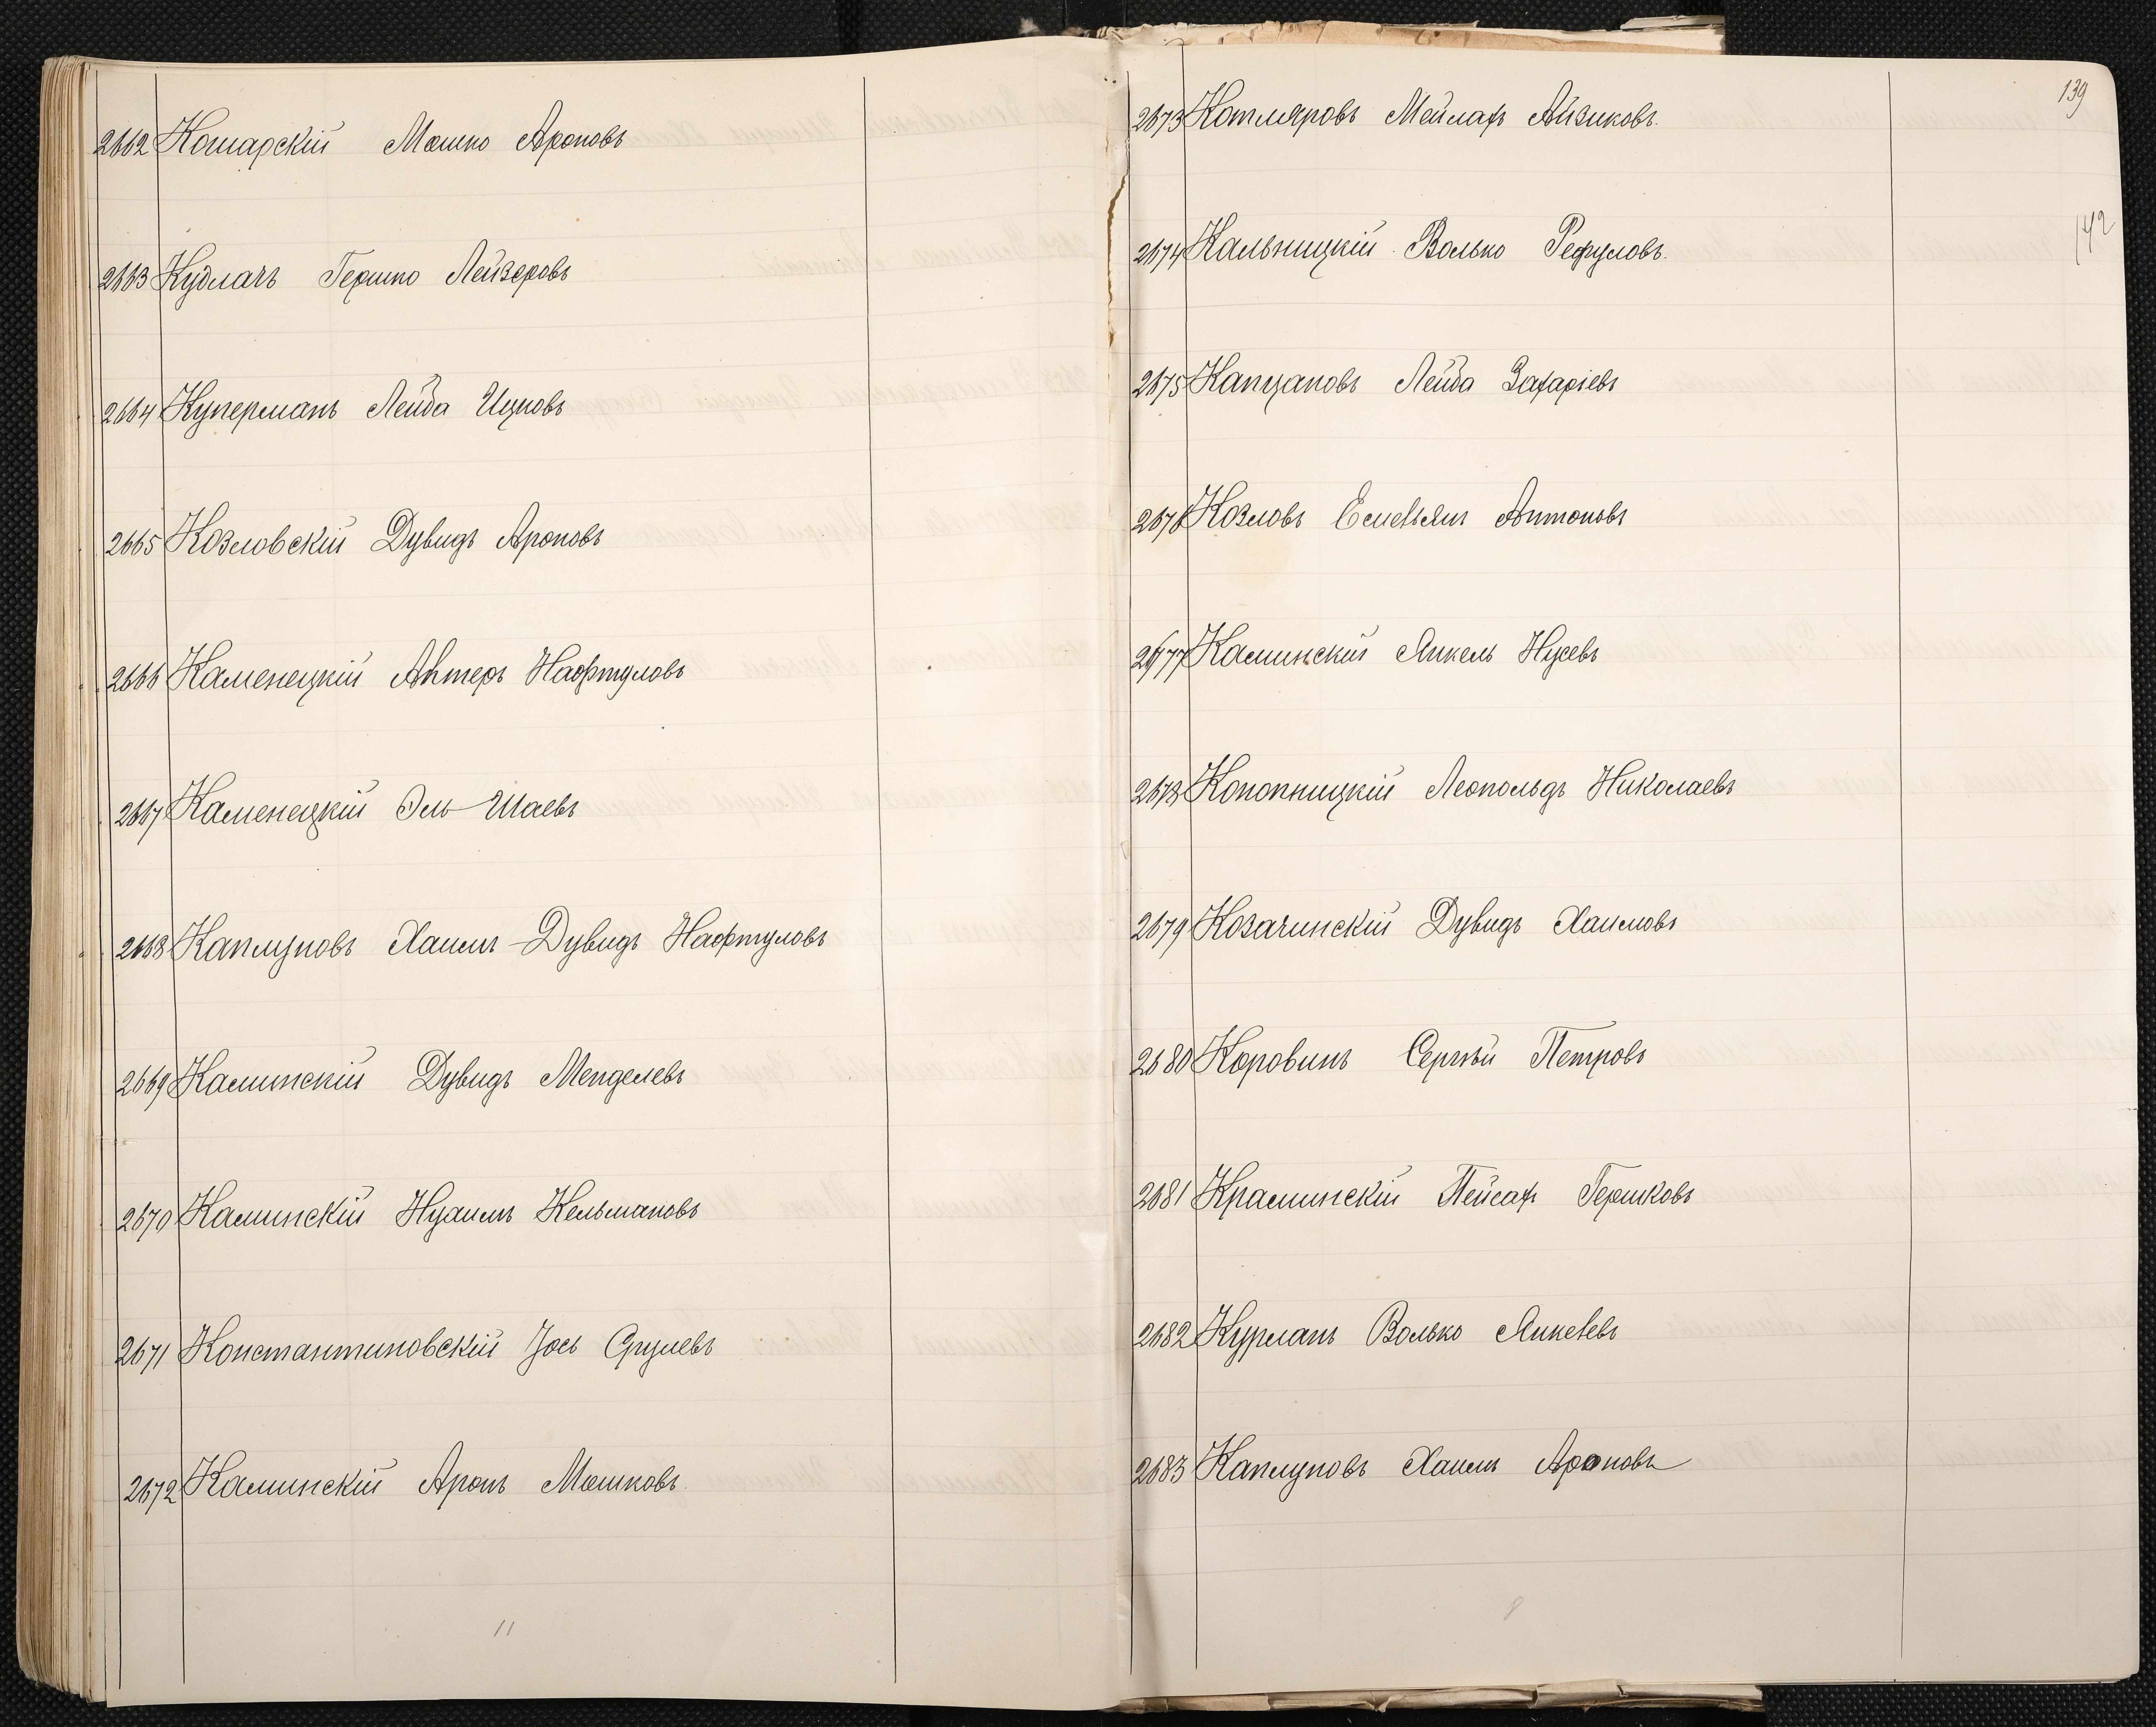 2662 Кошарскій Мошко Ароновъ
2663 Кудлачъ Гершко Лейзеровъ
2664 Куперманъ Лейба Ицковъ
2665 Козловскій Дувидъ Ароновъ
2666 Каменецкій Айтеръ Нафтуловъ
2667 Каменецкій Эль-Шаевъ
2668 Каплуновъ Хаимъ-Дувидъ Нафтуловъ
2669 Каминскій Дувидъ Менделевъ
2670 Каминскій Нухимъ Кельмановъ
2671 Константиновскій Іось Срулевъ
2672 Каминскій Аронъ Мошковъ
11
139
142
2673 Котляровъ Мейлахъ Айзиковъ.
2674 Кальницкій Волько Рефуловъ.
2675 Капцановъ Лейба Захаріевъ
2676 Козловъ Емельянъ Антоновъ
2677 Каминскій Янкель Нусевъ
2678 Конопницкій Леопольдъ Николаевъ
2679 Козачинскій Дувидъ Хаимовъ
2680 Коровинъ Сергѣй Петровъ
2681 Краминскій Пейсахъ Гершковъ
2682 Курланъ Волько Янкелевъ
2683 Каплуновъ Хаимъ Ароновъ
8